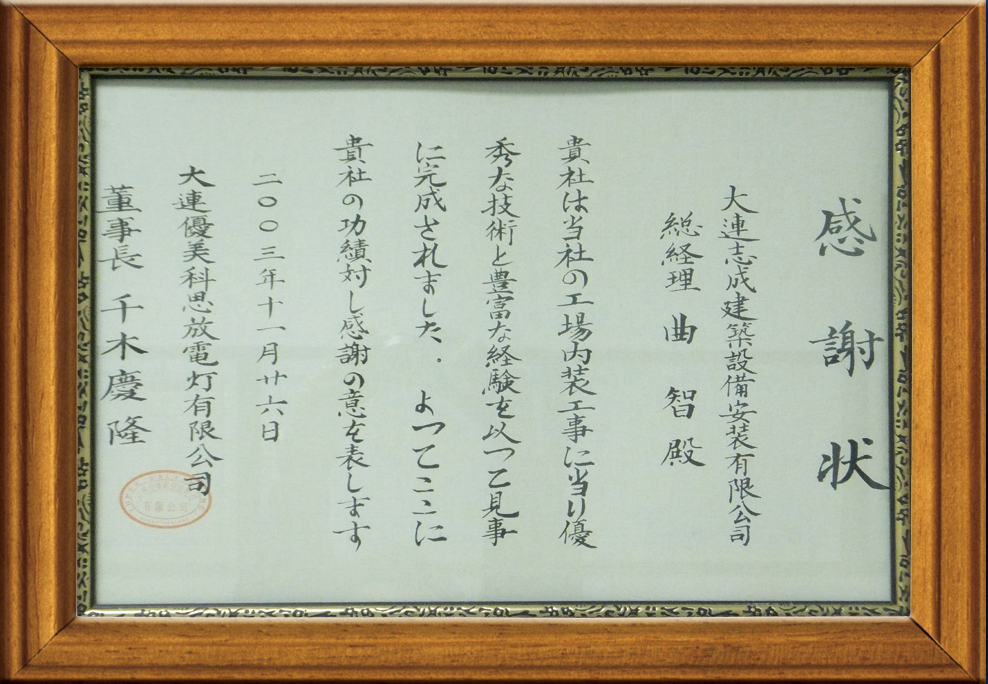 感謝状
大連志成建築設備安装有限公司
総経理 曲 智 殿
貴社は当社の工場内装工事に当り優
秀な技術と豊富な経験を以って見事
に完成されました. よってここに
貴社の功績対し感謝の意を表します
二〇〇三年十一月廿六日
大連優美科思放電灯有限公司
董事長 千木慶隆
有限公司